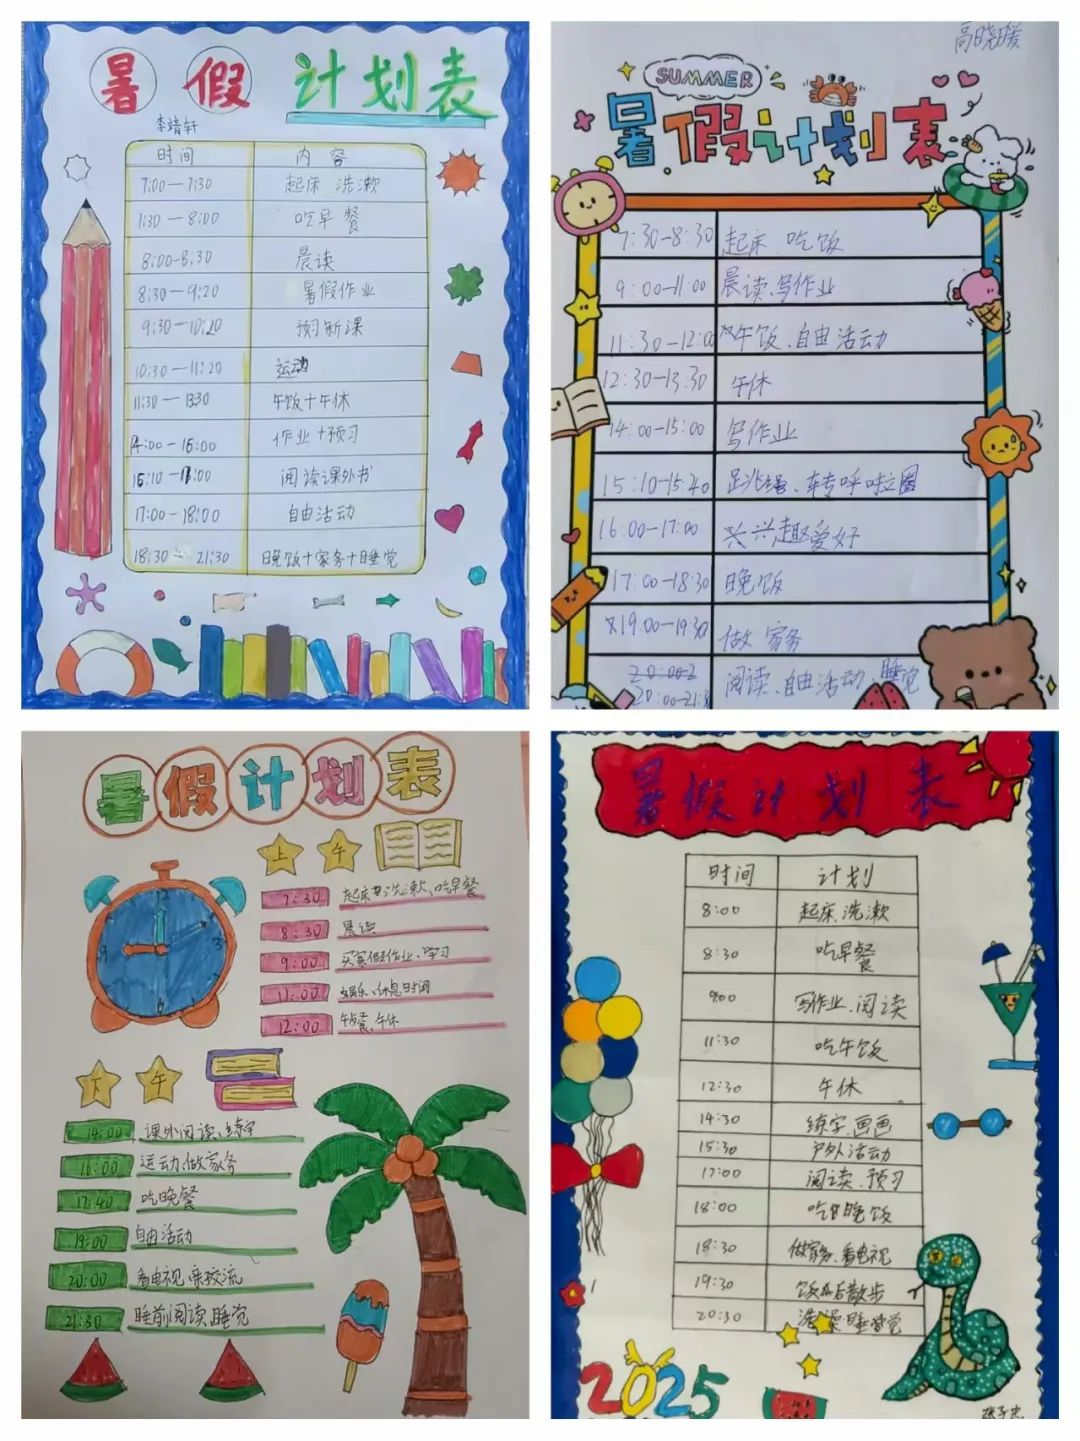 暑假计划表
李靖轩
时间 内容
7:00—7:30 起床 洗漱
7:30—8:00 吃早餐
8:00-8:30 晨读
8:30—9:20 暑假作业
9:30—10:20 预习新课
10:30—11:20 运动
11:30—13:30 午饭+午休
14:00—15:00 作业+预习
15:10—17:00 阅读课外书
17:00—18:00 自由活动
18:30—21:30 晚饭+家务+睡觉
高晓暖
SUMMER
暑假计划表
7:30-8:30 起床、吃饭
9:00-11:00 晨读、写作业
11:30-12:00 午饭、自由活动
12:30-13:30 午休
14:00-15:00 写作业
15:10-15:40 跳绳、转呼啦圈
16:00-17:00 兴趣爱好
17:00-18:30 晚饭
19:00-19:30 做家务
20:00-21:3 阅读、自由活动、睡觉
暑假计划表
上午
7:30 起床洗漱、吃早餐
8:30 晨读
9:00 写暑假作业、学习
11:00 娱乐、休息时间
12:00 午餐、午休
12
3
9
下午
14:00 课外阅读、练字
16:00 运动、做家务
17:40 吃晚餐
19:00 自由活动
20:00 看电视、亲子交流
21:30 睡前阅读、睡觉
暑假计划表
时间 计划
8:00 起床、洗漱
8:30 吃早餐
9:00 写作业、阅读
11:30 吃午饭
12:30 午休
14:30 练字、画画
15:30 户外活动
17:00 阅读、预习
18:00 吃晚饭
18:30 做家务、看电视
19:30 饭后散步
20:30 洗澡睡觉
2025